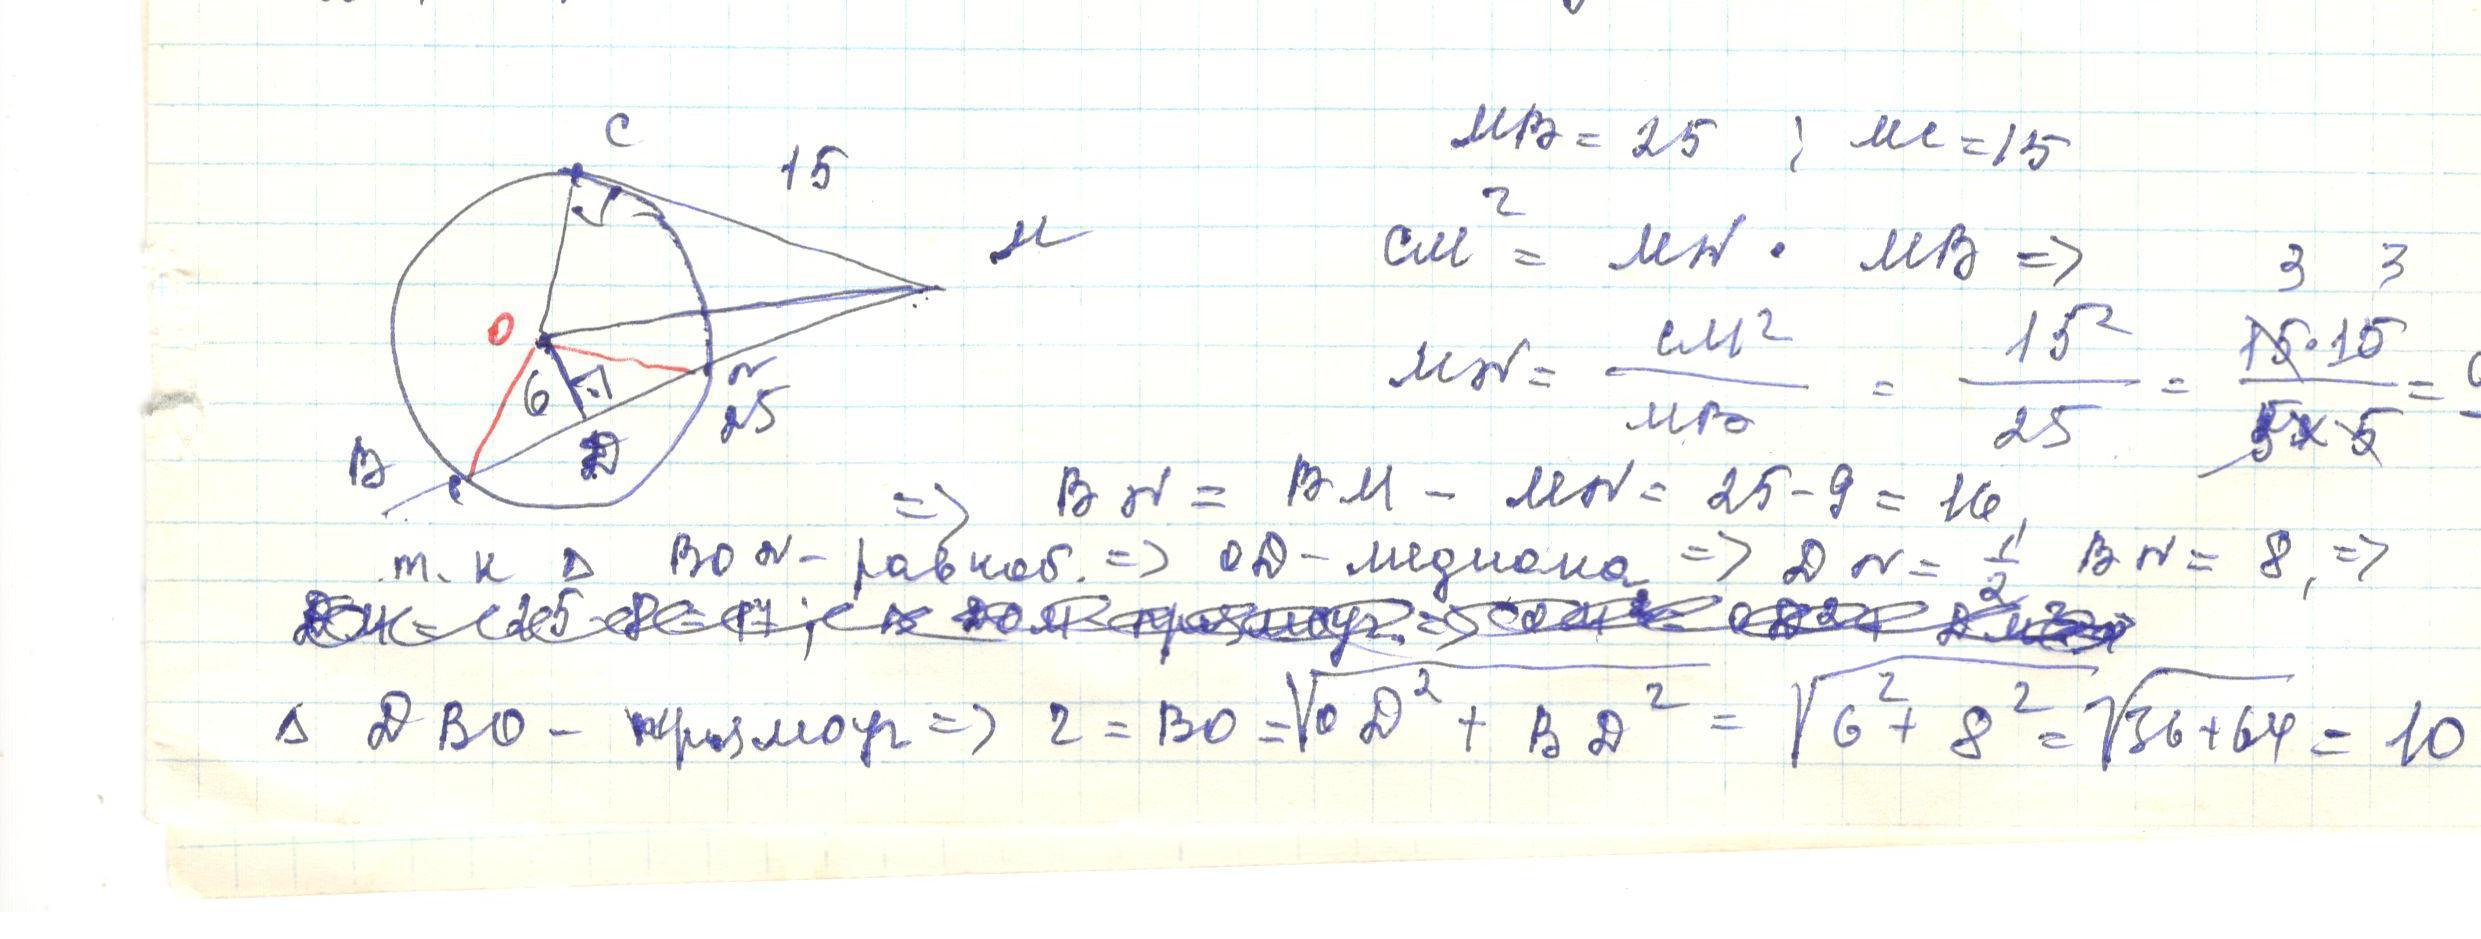 C
15
M
O
6
N
25
D
B
MB = 25 ; MC = 15
CM² = MN · MB =>
MN = CM²/MB = 15²/25 = 15·15/5·5 =
3 3
=> BN = BM - MN = 25 - 9 = 16,
т.к Δ BON - равноб. => OD - медиана => DN = 1/2 BN = 8, =>
Δ DBO - прямоуг => r = BO = √OD² + BD² = √6² + 8² = √36+64 = 10